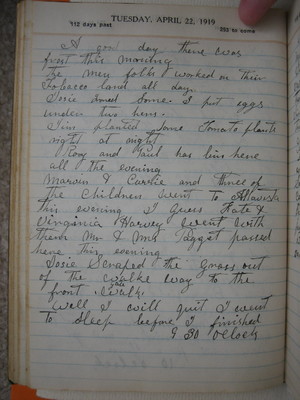 112 days past
TUESDAY, APRIL 22, 1919
253 to come
A good day there was
frost this morning
The men folks worked on their
Tobacco land all day.
Josie ironed some. I put eggs
under two hens.
Jim planted some Tomato plants
right at night
Roy and Paul has bin here
all the evening
Marvin & Curtie and three of
the Children went to Altavista
this evening I guess Kate &
Virginia Harvey went with
them Mr & Mrs passed
here this evening
Josie Scraped the grass out
of the walke way to the
front gate.
Well I will quit I went
to sleep before I finished
9 30 oclock